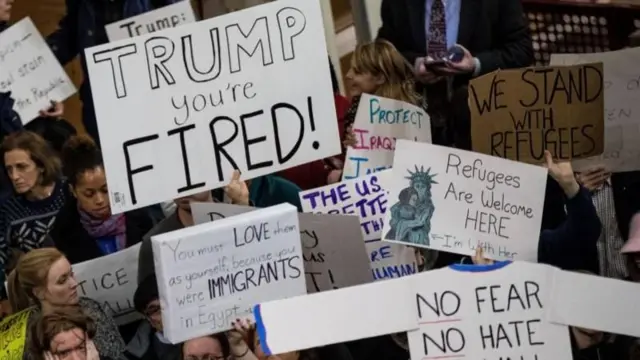 TRUMP
TRUMP
you're
FIRED!
stain
the Republic
WE STAND
WITH
REFUGEES
PROTECT
IRAQ
Refugees
Are Welcome
HERE
←I'm with Her
THE US
BETTER
HUMAN
You must LOVE them
as yourself, because you
were IMMIGRANTS
in Egypt
NO FEAR
NO HATE
NO